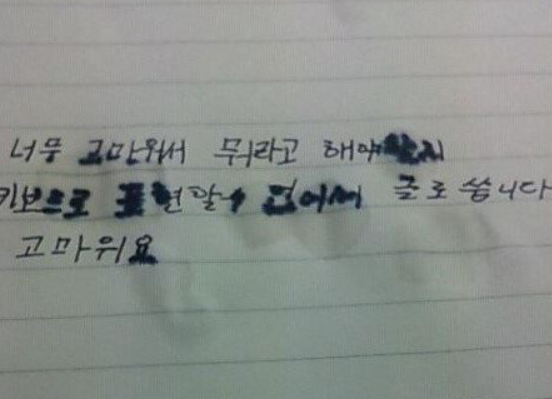 너무 고마워서 뭐라고 해야할지
키보으로 표현할수 없어서 글로 씁니다
고마워요